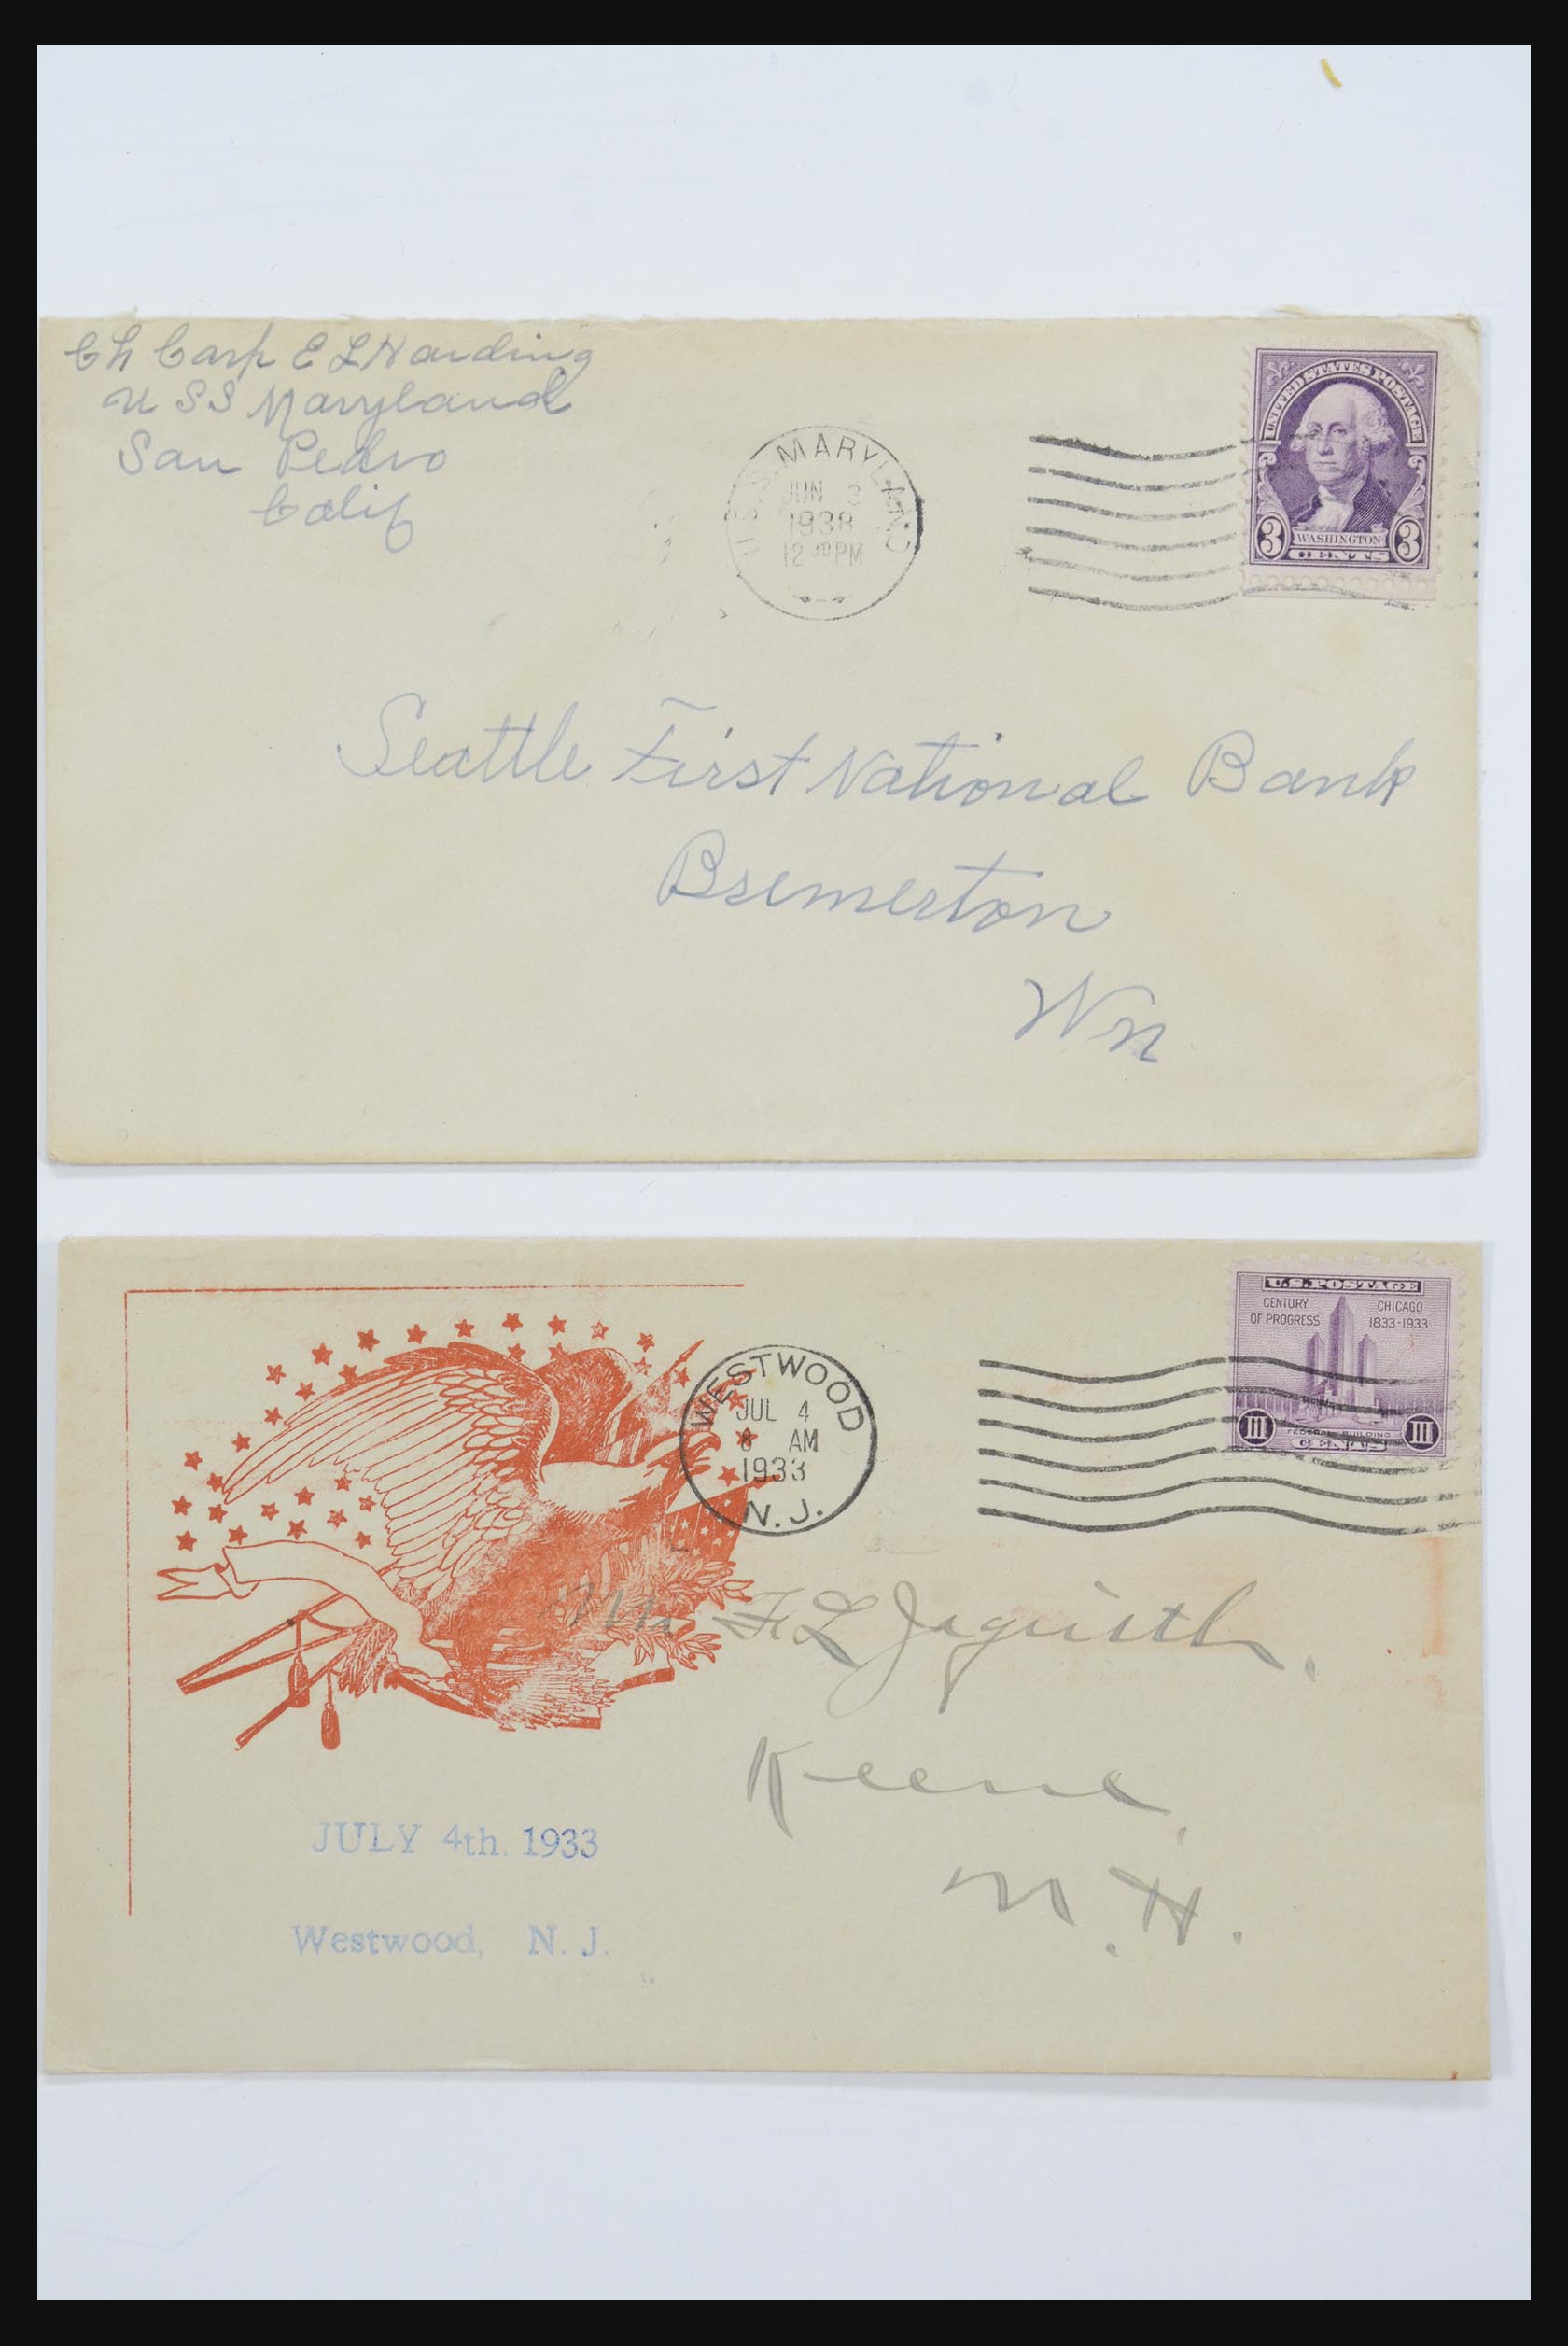 Ch Carp E L Harding
U S S Maryland
San Pedro
Calif
U.S.S. MARYLAND
JUN 3
1938
12 30 PM
UNITED STATES POSTAGE
3 WASHINGTON 3
CENTS
Seattle First National Bank
Bremerton
Wn
U.S. POSTAGE
CENTURY OF PROGRESS
CHICAGO 1833-1933
III FEDERAL BUILDING III
CENTS
WESTWOOD
JUL 4
8 AM
1933
N.J.
Mr F L Jaquith.
Keene,
N.H.
JULY 4th. 1933
Westwood, N. J.